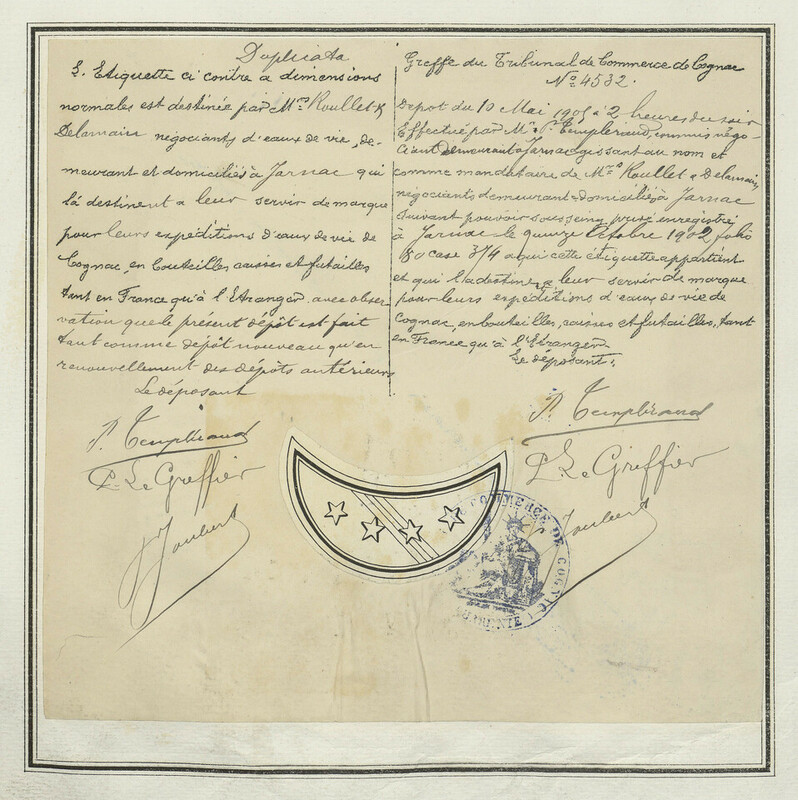 Duplicata
L'Etiquette ci contre a dimensions
normales est destinée par Mrs Roullet &
Delamain négociants d'eaux de vie, de-
meurant et domiciliés à Jarnac qui
la destinent a leur servir de marque
pour leurs expéditions d'eaux de vie de
Cognac, en bouteilles caisses et futailles
tant en France qu'à l'Etranger avec obser
vation que le présent dépôt est fait
tant comme dépôt nouveau qu'en
renouvellement des dépôts antérieurs
Le déposant
P. Templéraud
P. Le Greffier
Joubert
Greffe du Tribunal de Commerce de Cognac
No 4532.
Depot du 10 Mai à 2 heures du soir
Effectué par Mr P. Templéraud, commis négo-
ciant demeurant à Jarnac agissant au nom et
comme mandataire de Mrs Roullet & Delamain
négociants demeurant & domiciliés à Jarnac
suivant pouvoir sous seing privé enregistré
à Jarnac le quinze Octobre 1902 folio
80 case 374 a qui cette étiquette appartient
et qui la destine a leur servir de marque
pour leurs expéditions d'eaux de vie de
Cognac, en bouteilles, caisses et futailles, tant
en France qu'à l'Etranger
Le déposant,
P. Templéraud
P. Le Greffier
Joubert
COMMERCE DE COGNAC
CHARENTE